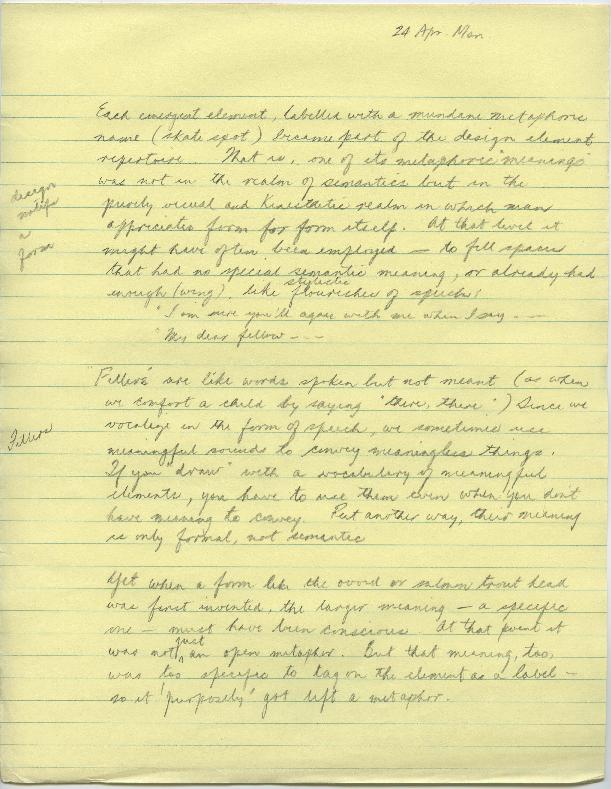 24 Apr. Mon
Each emergent element, labelled with a mundane metaphoric
name (skate spot) became part of the design element
repertoire. That is, one of its metaphoric "meanings"
was not in the realm of semantics but in the
purely visual and Kinesthetic realm in which man
appreciates form for form itself. At that level it
might have often been employed — to fill spaces
that had no special semantic meaning, or already had
enough (wing), like stylistic flourishes of speech:
"I am sure you'll agree with me when I say ---
"My dear fellow ---
design
motifs
a
form
"Fillers" are like words spoken but not meant (as when
we comfort a child by saying "there, there".) Since we
vocalize in the form of speech, we sometimes use
meaningful sounds to convey meaningless things.
If you "draw" with a vocabulary of meaningful
elements, you have to use them even when you don't
have meaning to convey. Put another way, their meaning
is only formal, not semantic
Fillers
Yet when a form like the ovoid or salmon trout head
was first invented, the larger meaning — a specific
one — must have been conscious. At that point it
was not just an open metaphor. But that meaning, too,
was too specific to tag on the element as a label —
so it "purposely" got left a metaphor.